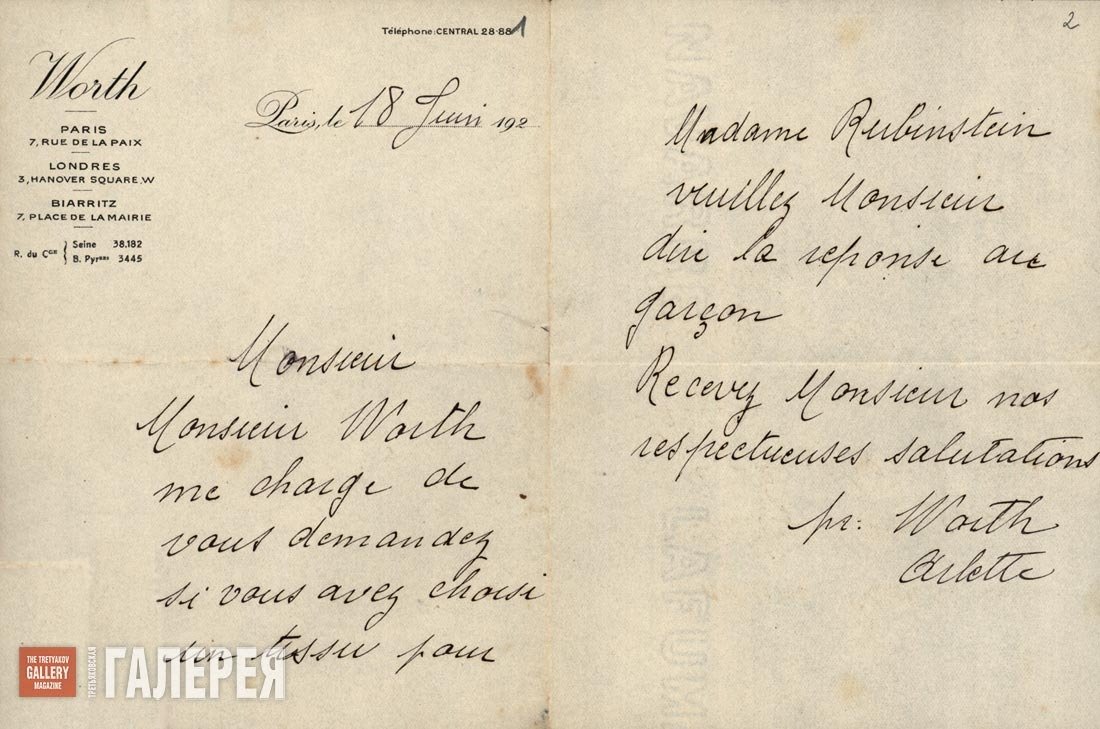 Téléphone: CENTRAL 28-88
1
Worth
PARIS
7, RUE DE LA PAIX
LONDRES
3, HANOVER SQUARE, W
BIARRITZ
7, PLACE DE LA MAIRIE
R. du Cᴳᴱ { Seine 38.182
B. Pyrᵉᵉˢ 3445
Paris, le 18 Juin 192
Monsieur
Monsieur Worth
me charge de
vous demandez
si vous avez choisi
un tissu pour
2
Madame Rubinstein
veuillez Monsieur
dire la reponse au
garçon
Recevez Monsieur nos
respectueuses salutations
pr: Worth
Arlette
THE TRETYAKOV
GALLERY
MAGAZINE
ТРЕТЬЯКОВСКАЯ
ГАЛЕРЕЯ